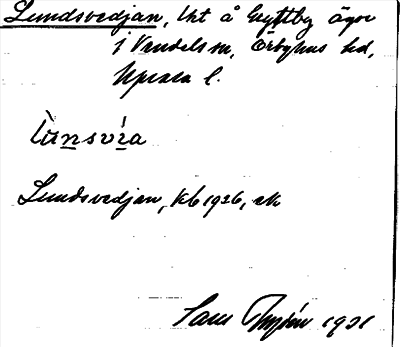 Lundsvedjan, lht å Gryttby ägor
i Vendels sn, Örbyhus hd,
Uppsala l.
Lundsvedjan, Kb 1926, ek
Sam 1931